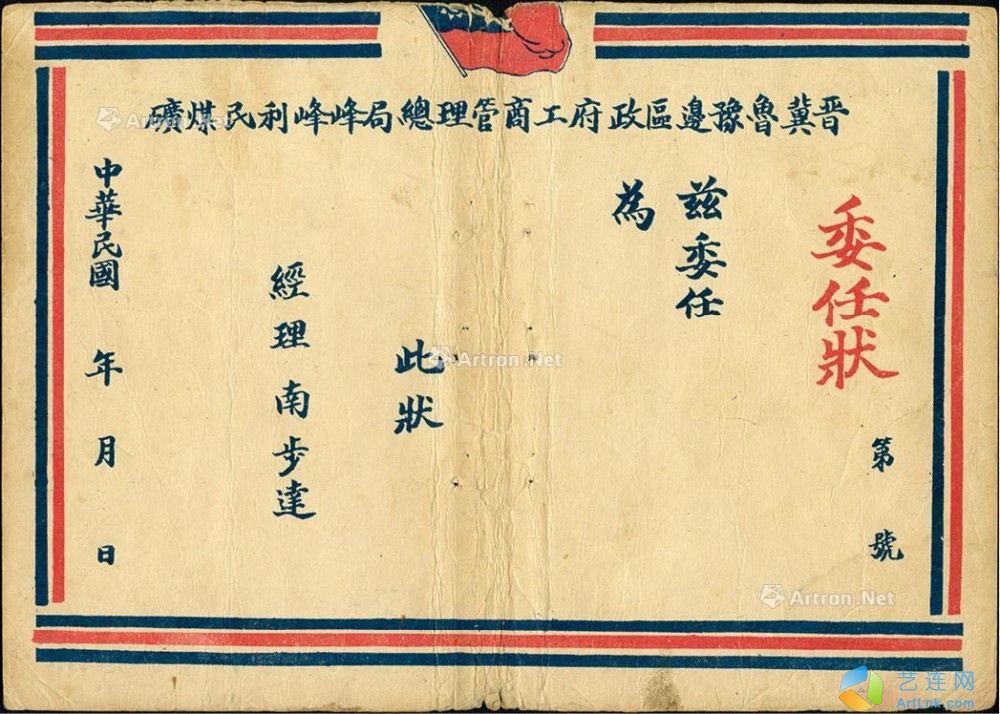 晋冀魯豫邊區政府工商管理總局峰峰利民煤礦
委任狀
第 號
兹委任
為
此狀
經理南步達
中華民國 年 月 日
Artron.Net
Artron.Net
Artron.Net
艺连网
ArtLnk.com